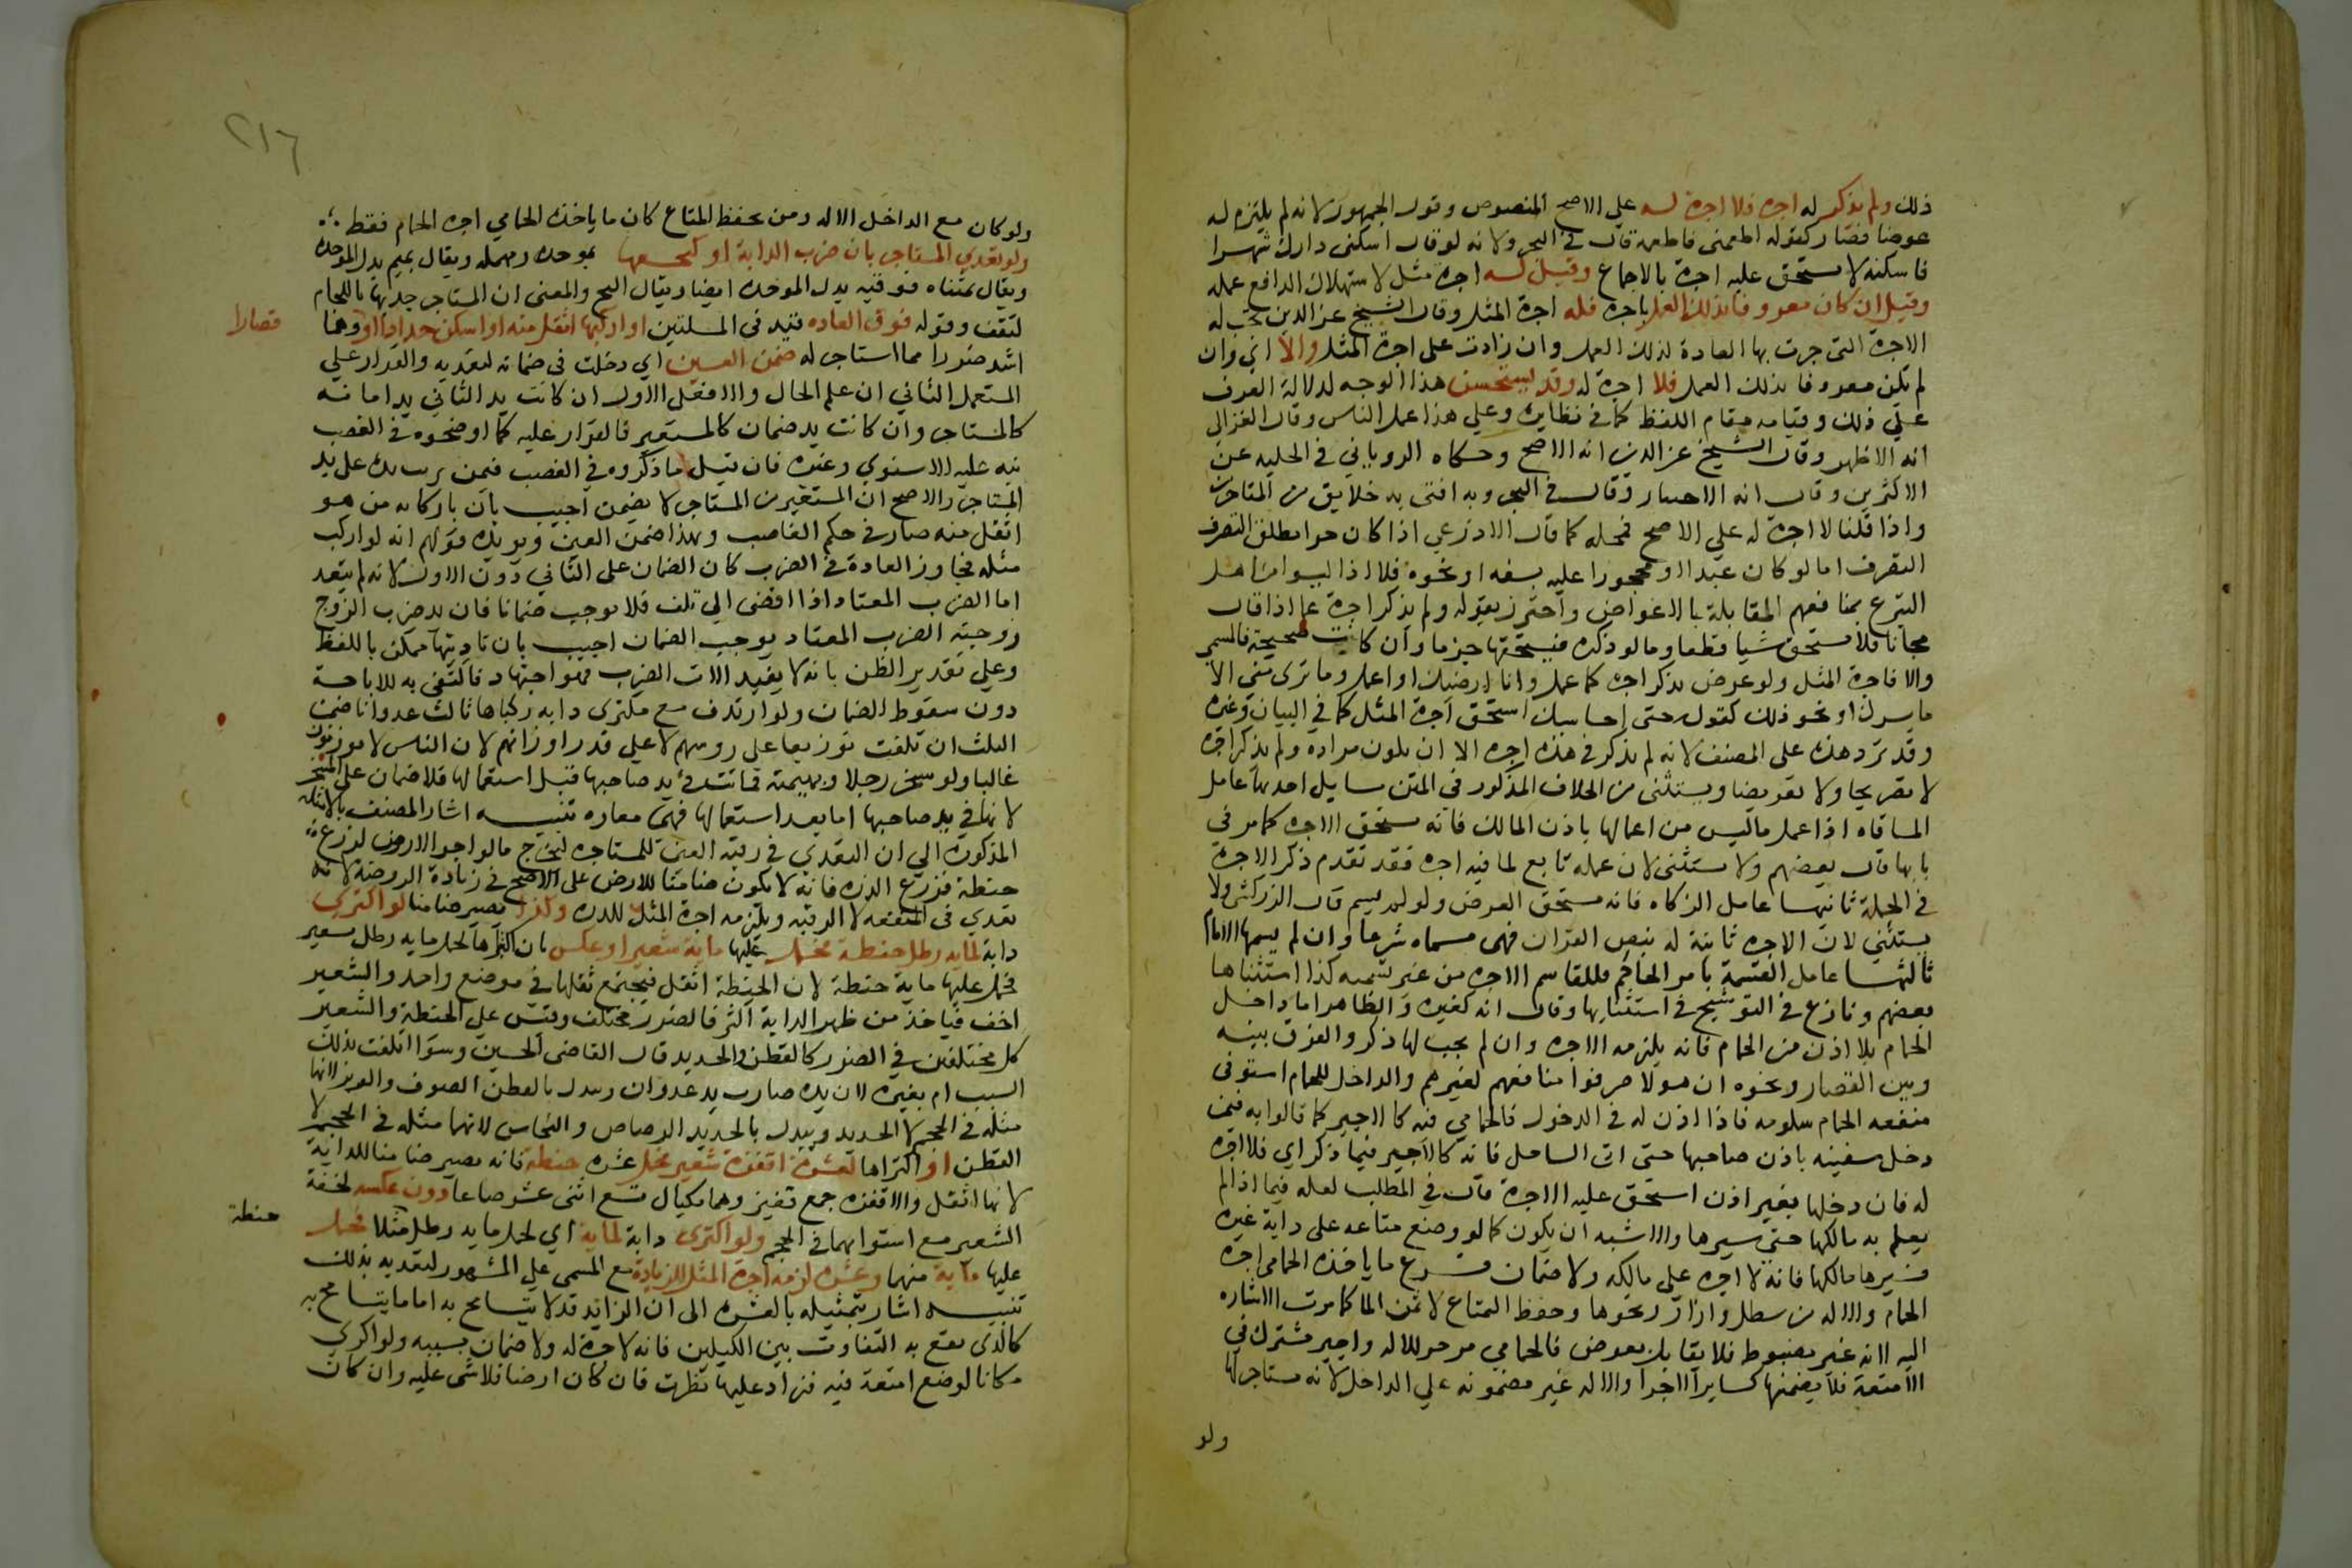 ذلك ولم يذكر له اجره فلا اجرة له على الاصح المنصوص وقول الجمهور لانه لم يلتزم له
عوضا فصار كقوله اطعمني فاطعمه قال في البحر ولانه لو قال اسكني دارك شهرا
فاسكنه لا يستحق عليه اجرة بالاجماع وقيل له اجرة مثل لاستهلاك الدافع عمله
وقيل ان كان معروفا بذلك العمل باجره فله اجرة المثل وقال الشيخ عز الدين تجب له
الاجرة التي جرت بها العادة لذلك العمل وان زادت على اجرة المثل والا اي وان
لم يكن معروفا بذلك العمل فلا اجرة له وقد يستحسن هذا الوجه لدلالة العرف
على ذلك وقيامه مقام اللفظ كما في نظايره وعلى هذا عمل الناس وقال الغزالي
انه الاظهر وقال الشيخ عز الدين انه الاصح وحكاه الروياني في الحليه عن
الاكثرين وقال انه الاختيار وقال في البحر وبه افتى به خلايق من المتاخرين
واذا قلنا لا اجرة له على الاصح فمحله كما قال الاذرعي اذا كان حرا مطلق التصرف
التصرف اما لو كان عبدا او محجورا عليه بسفه او نحوه فلا اذ ليسوا من اهل
التبرع بمنافعهم المقابلة بالاعواض واحترز بقوله ولم يذكر اجرة عما اذا قال
مجانا فلا يستحق شيا قطعا وما لو ذكره فيستحقها جزما وان كانت صحيحة فالمسمى
والا فاجرة المثل ولو عرض بذكر اجره كاعمل وانا ارضيك او اعمل وما ترى مني الا
ما يسرك او نحو ذلك كقوله حتى احاسبك استحق اجرة المثل كما في البيان وغيره
وقد ترد هذه على المصنف لانه لم يذكر في هذه اجره الا ان يكون مراده ولم يذكر اجرة
لا تصريحا ولا تعريضا ويستثنى من الخلاف المذكور في المتن مسايل احدها عامل
المساقاه اذا عمل ما ليس من اعمالها باذن المالك فانه يستحق الاجره كما مر في
بابها قال بعضهم ولا يستثنى لان عمله تابع لما فيه اجره فقد تقدم ذكر الاجرة
في الجملة ثانيها عامل الزكاه فانه يستحق العوض ولو لم يسم قال الزركشي ولا
يستثنى لان الاجره ثابتة له بنص القران فهي مسماه شرعا وان لم يسمها الامام
ثالثها عامل القسمة بامر الحاكم فللقاسم الاجره من غير تسميه كذا استثناها
بعضهم ونازع في التوشيح في استثنايها وقال انه كغيره والظاهر اما داخل
الحمام بلا اذن من الحمام فانه يلزمه الاجره وان لم يجب لها ذكر والفرق بينه
وبين القصار ونحوه ان هولا صرفوا منافعهم لغيرهم والداخل للحمام استوفى
منفعه الحمام بسلوته فاذا اذن له في الدخول فالحمامي فيه كالاجير كما قالوا به فيمن
دخل سفينه باذن صاحبها حتى اتى الساحل فانه كالاجير فيما ذكر اي فلا اجرة
له فان دخلها بغير اذن استحق عليه الاجرة قال في المطلب لعله فيما اذا لم
يعلم به مالكها حتى سيرها والا اشبه ان يكون كما لو وضع متاعه على دابة غيره
فسيرها مالكها فانه لا اجره على مالكه ولا ضمان فرع ما ياخذه الحمامي اجرة
الحمام والاله من سطل وازار ونحوها وحفظ المتاع لا ثمن الما كما مرت الاشاره
اليه لانه غير مضبوط فلا يقابل بعوض فالحمامي موجر للاله واجير مشترك في
الامتعة فلا يضمنها كساير الاجرا والاله غير مضمونه على الداخل لانه مستاجر لها
ولو
٢١٦
ولو كان مع الداخل الاله ومن يحفظ المتاع كان ما ياخذه الحمامي اجره الحمام فقط
ولو تعدي المستاجر بان ضرب الدابة او كبحها بموحدة ومهمله ويقال بميم بدل الموحدة
ويقال بمثناه فوقيه بدل الموحده ايضا ويقال اكبح والمعنى ان المستاجر جذبها باللجام
لتقف وقوله فوق العاده قيد في المسلتين او اركبها اثقل منه او اسكن حدادا او وهما
قصارا
اشد ضررا مما استاجر له ضمن العين اي دخلت في ضمانه لتعديه والقرار على
المستعمل الثاني ان علم الحال والا فعلى الاول ان كانت يد الثاني يد امانه
كالمستاجر وان كانت يد ضمان كالمستعير فالقرار عليه كما اوضحوه في الغصب
نبه عليه الاسنوي وغيره فان قيل ما ذكروه في الغصب فيمن ترتبت يده على يد
المستاجر والاصح ان المستعير من المستاجر لا يضمن اجيب بان باركابه من هو
اثقل منه صار في حكم الغاصب وبهذا ضمن العين ويؤيده قولهم انه لو اركب
مثله فجاوز العادة في الضرب كان الضمان على الثاني دون الاول لانه لم يتعد
اما الضرب المعتاد اذا افضى الى تلف فلا يوجب ضمانا فان قيل ضرب الزوج
زوجته الضرب المعتاد يوجب الضمان اجيب بان تاديبها ممكن باللفظ
وعلى تقدير الظن بانه لا يفيد الا الضرب فهو اجتهاد فاكتفي به للاباحة
دون سقوط الضمان ولو ارتدف مع مكتري دابه ركباها ثالث عدوانا ضمن
الثلث ان تلفت توزيعا على رووسهم لا على قدر اوزانهم لان الناس لا يوزنون
غالبا ولو سخر رجلا وبهيمته فماتت في يد صاحبها قبل استعمالها فلا ضمان على المسخر
لانها في يد صاحبها اما بعد استعمالها فهي معاره تنبيه اشار المصنف بالامثله
المذكورة الى ان التعدي في رقبة العين المستاجره ليخرج ما لو اجر الارض لزرع
حنطة فزرع الذره فانه لا يكون ضامنا للارض على الاصح في زيادة الروضة لانه
تعدي في المنفعه لا الرقبه ويلزمه اجرة المثل للذره وكذا يصير ضامنا لو اكترى
دابة لمايه رطل حنطة فحمل عليها ماية شعير او عكس بان اكتراها لحمل مايه رطل شعير
فحمل عليها ماية حنطة لان الحنطة اثقل فيجتمع ثقلها في موضع واحد والشعير
اخف فياخذ من ظهر الدابة اكثر فالضرر مختلف وقس على الحنطة والشعير
كل مختلفين في الضرر كالقطن والحديد قال القاضي الحسين وسوا اتلفت بذلك
السبب ام بغيره لان يده صارت يد عدوان ويبدل بالقطن الصوف والوبر لانهما
مثله في الحجم لا الحديد ويبدل بالحديد الرصاص والنحاس لانهما مثله في الحجم لا
القطن او اكتراها لعشرة اقفزة شعير فحمل عشره حنطة فانه يصير ضامنا للدابة
لانها اثقل والاقفزه جمع قفيز وهما مكيال يسع اثنى عشر صاعا دون عكسه لخفة
الشعير مع استوايهما في الحجم ولو اكترى دابة لماية اي لحمل مايه رطل مثلا فحمل
حنطة
عليها ماية منها وعشرة لزمه اجرة المثل للزيادة مع المسمى على المشهور لتعديه بذلك
تنبيه اشار بتمثيله بالعشره الى ان الزايد قد لا يتسامح به اما ما يتسامح به
كالذي يقع به التفاوت بين الكيلين فانه لا اجرة له ولا ضمان بسببه ولو اكرى
مكانا لوضع امتعة فيه فزاد عليها نظرت فان كان ارضا فلا شي عليه وان كان